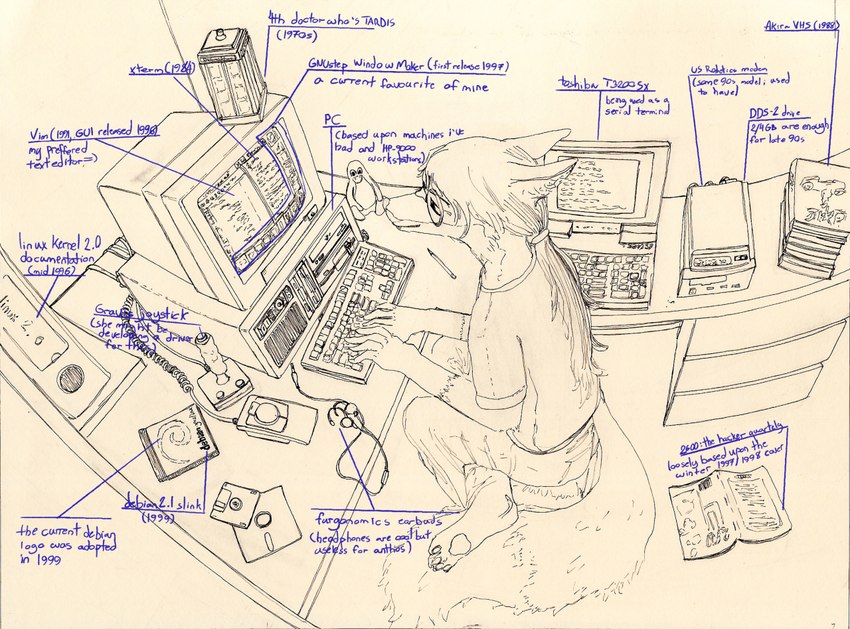 4th doctor who's TARDIS
(1970s)
Akira VHS (1988)
xterm (1984)
GNUstep Window Maker (first release 1997)
a current favourite of mine
US Robotics modem
(some 90s model i used
to have)
toshiba T3200SX
being used as a
serial terminal
DDS-2 drive
2/4GB are enough
for late 90s
PC
(based upon machines i've
had and HP-9000
workstations)
Vim (1991, GUI released 1996)
my preffered
text editor =)
linux kernel 2.0
documentation
(mid 1996)
linux 2.0
Gravis joystick
(she might be
developing a driver
for this)
2600: the hacker quarterly
loosely based upon the
winter 1997/1998 cover
debian 2.1 slink
(1999)
the current debian
logo was adopted
in 1999
furgonomics earbuds
(headphones are cool but
useless for anthros)